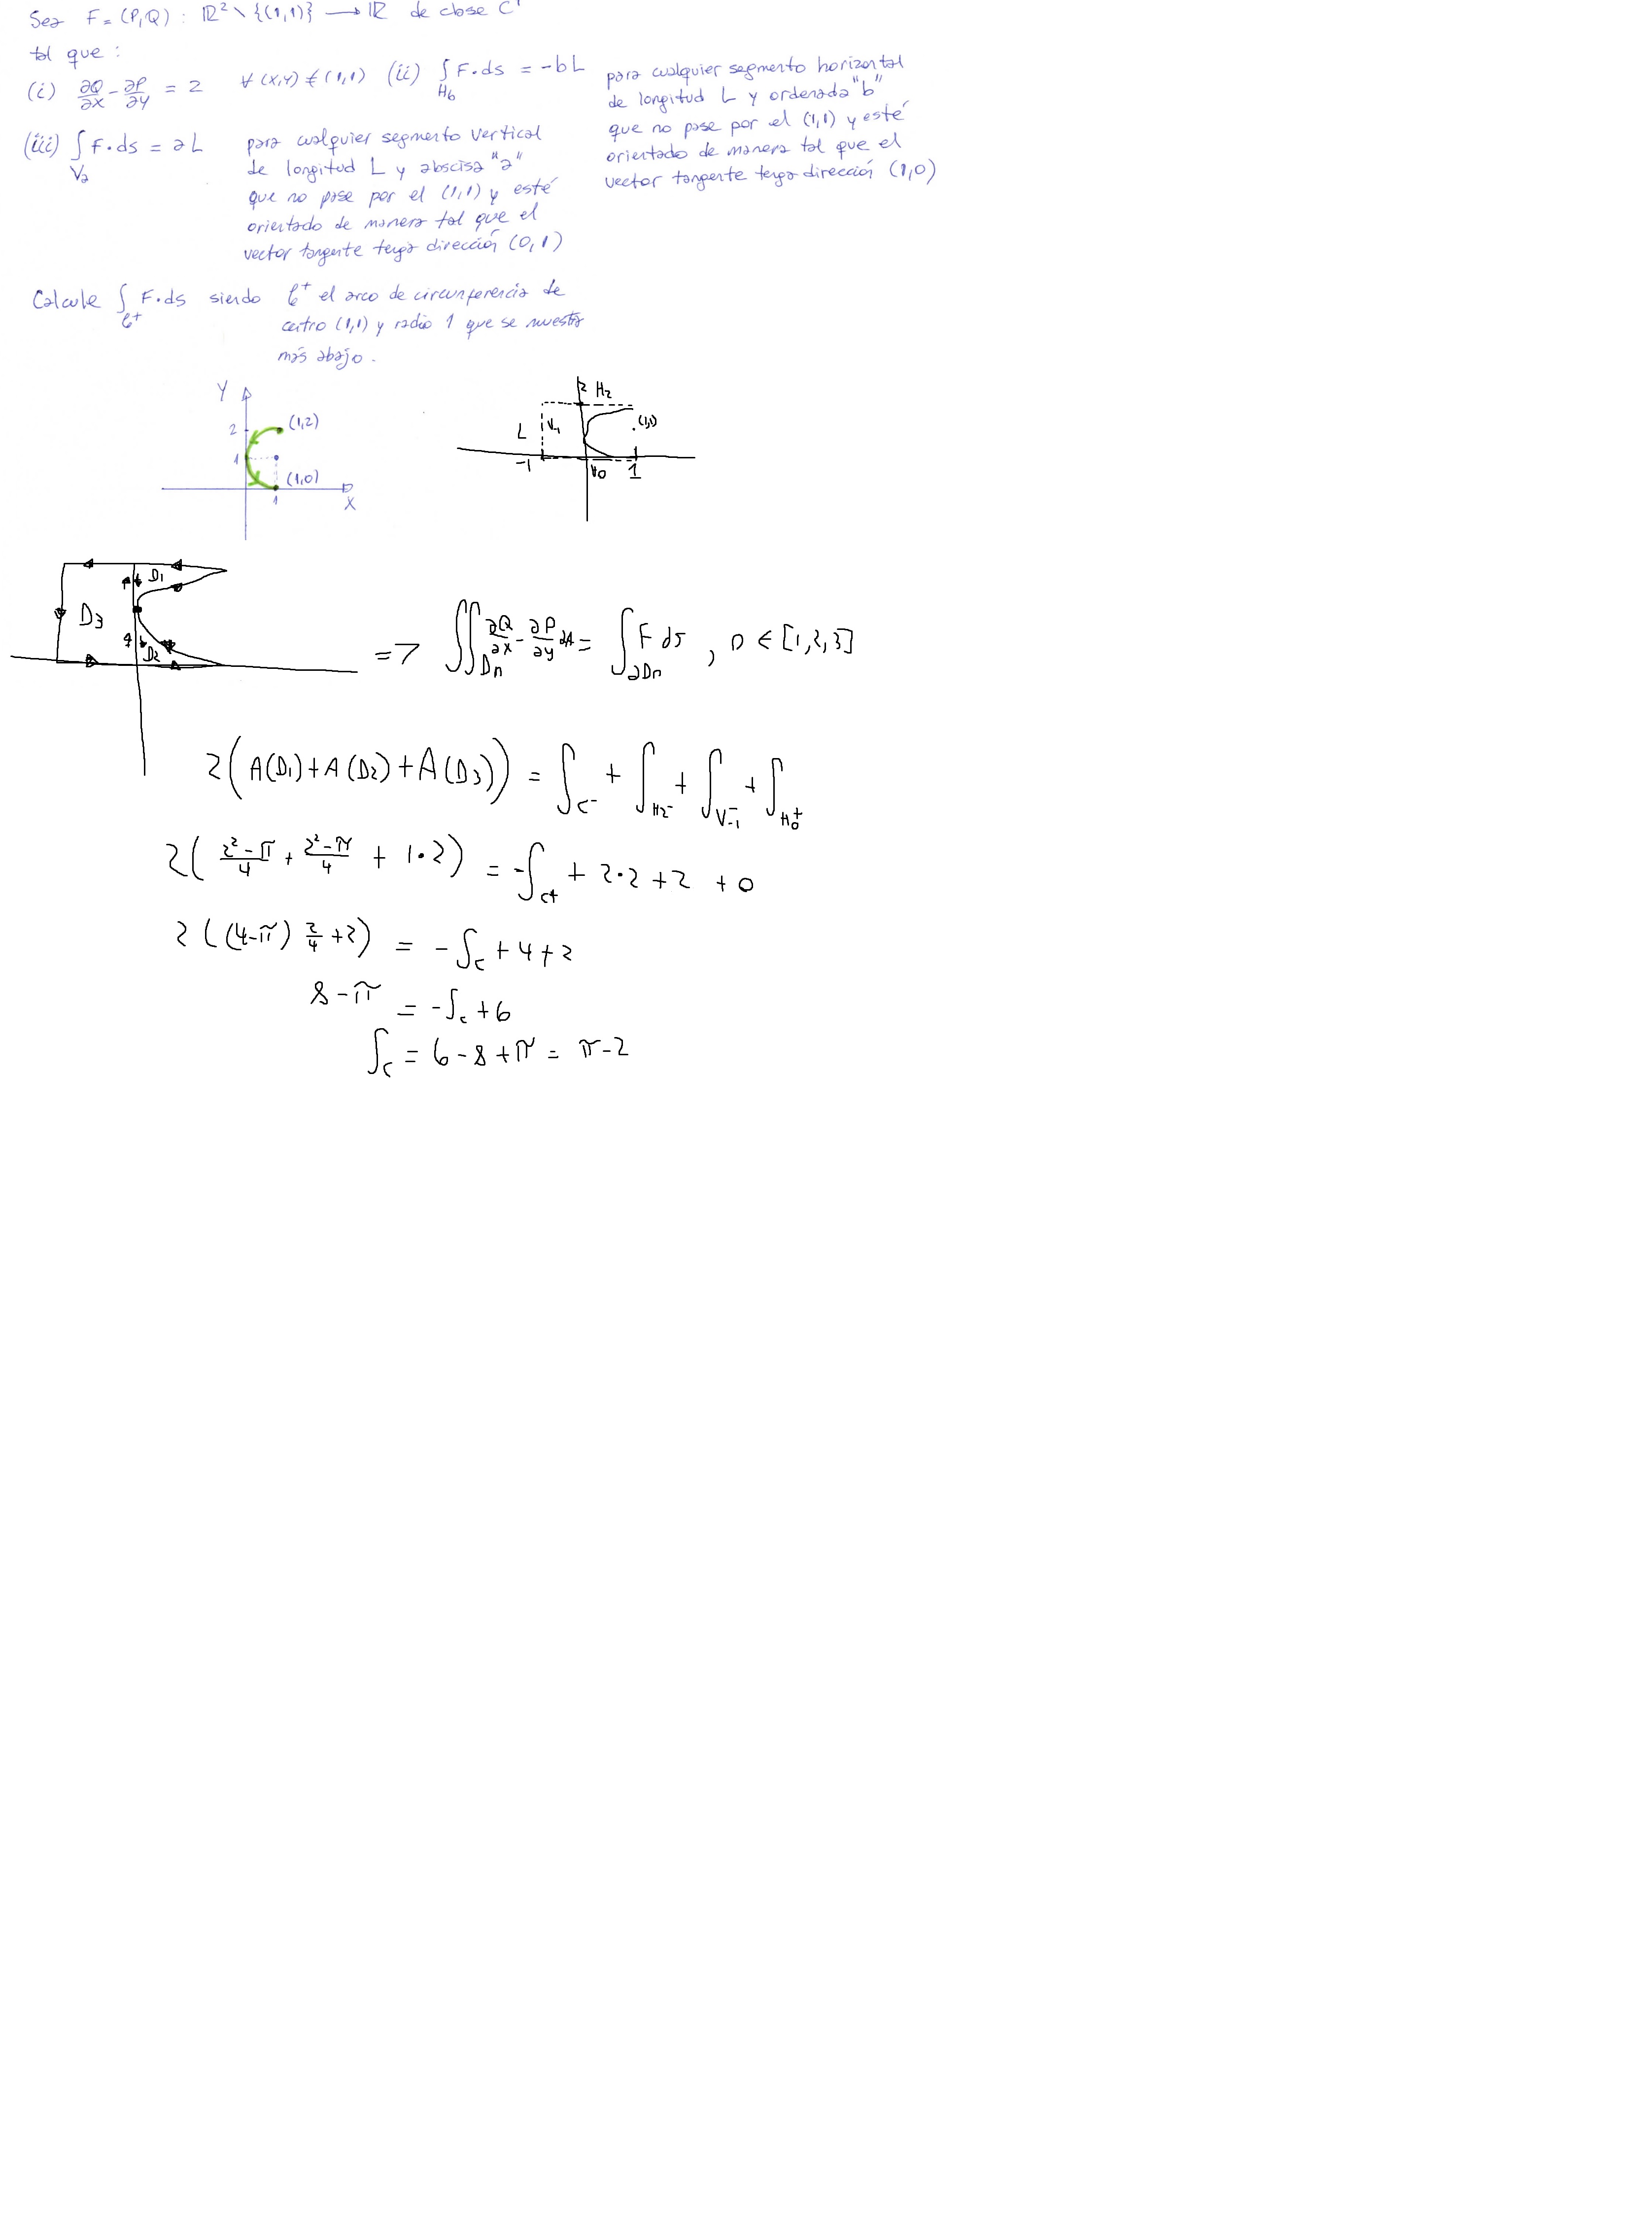 Sea F = (P,Q) : ℝ² \ {(1,1)} → ℝ de clase C¹
tal que :
(i) ∂Q/∂x - ∂P/∂y = 2 ∀ (x,y) ≠ (1,1) (ii) ∫_{H_b} F·ds = -bL para cualquier segmento horizontal
de longitud L y ordenada "b"
que no pase por el (1,1) y esté
orientado de manera tal que el
vector tangente tenga dirección (1,0)
(iii) ∫_{V_a} F·ds = aL para cualquier segmento vertical
de longitud L y abscisa "a"
que no pase por el (1,1) y esté
orientado de manera tal que el
vector tangente tenga dirección (0,1)
Calcule ∫_{C⁺} F·ds siendo C⁺ el arco de circunferencia de
centro (1,1) y radio 1 que se muestra
más abajo.
Y
2 (1,2)
1
(1,0)
1
X
2 H₂
L V₋₁ (1,1)
-1 H₀ 1
D₁
D₃
D₂
=> ∬_{Dn} ∂Q/∂x - ∂P/∂y dA = ∫_{∂Dn} F ds , n ∈ [1,2,3]
2(A(D₁)+A(D₂)+A(D₃)) = ∫_{C⁻} + ∫_{H₂⁻} + ∫_{V₋₁⁻} + ∫_{H₀⁺}
2( (2²-π)/4 + (2²-π)/4 + 1·2) = -∫_{C+} + 2·2 + 2 + 0
2((4-π) 2/4 + 2) = -∫_C + 4 + 2
8-π = -∫_C + 6
∫_C = 6 - 8 + π = π - 2